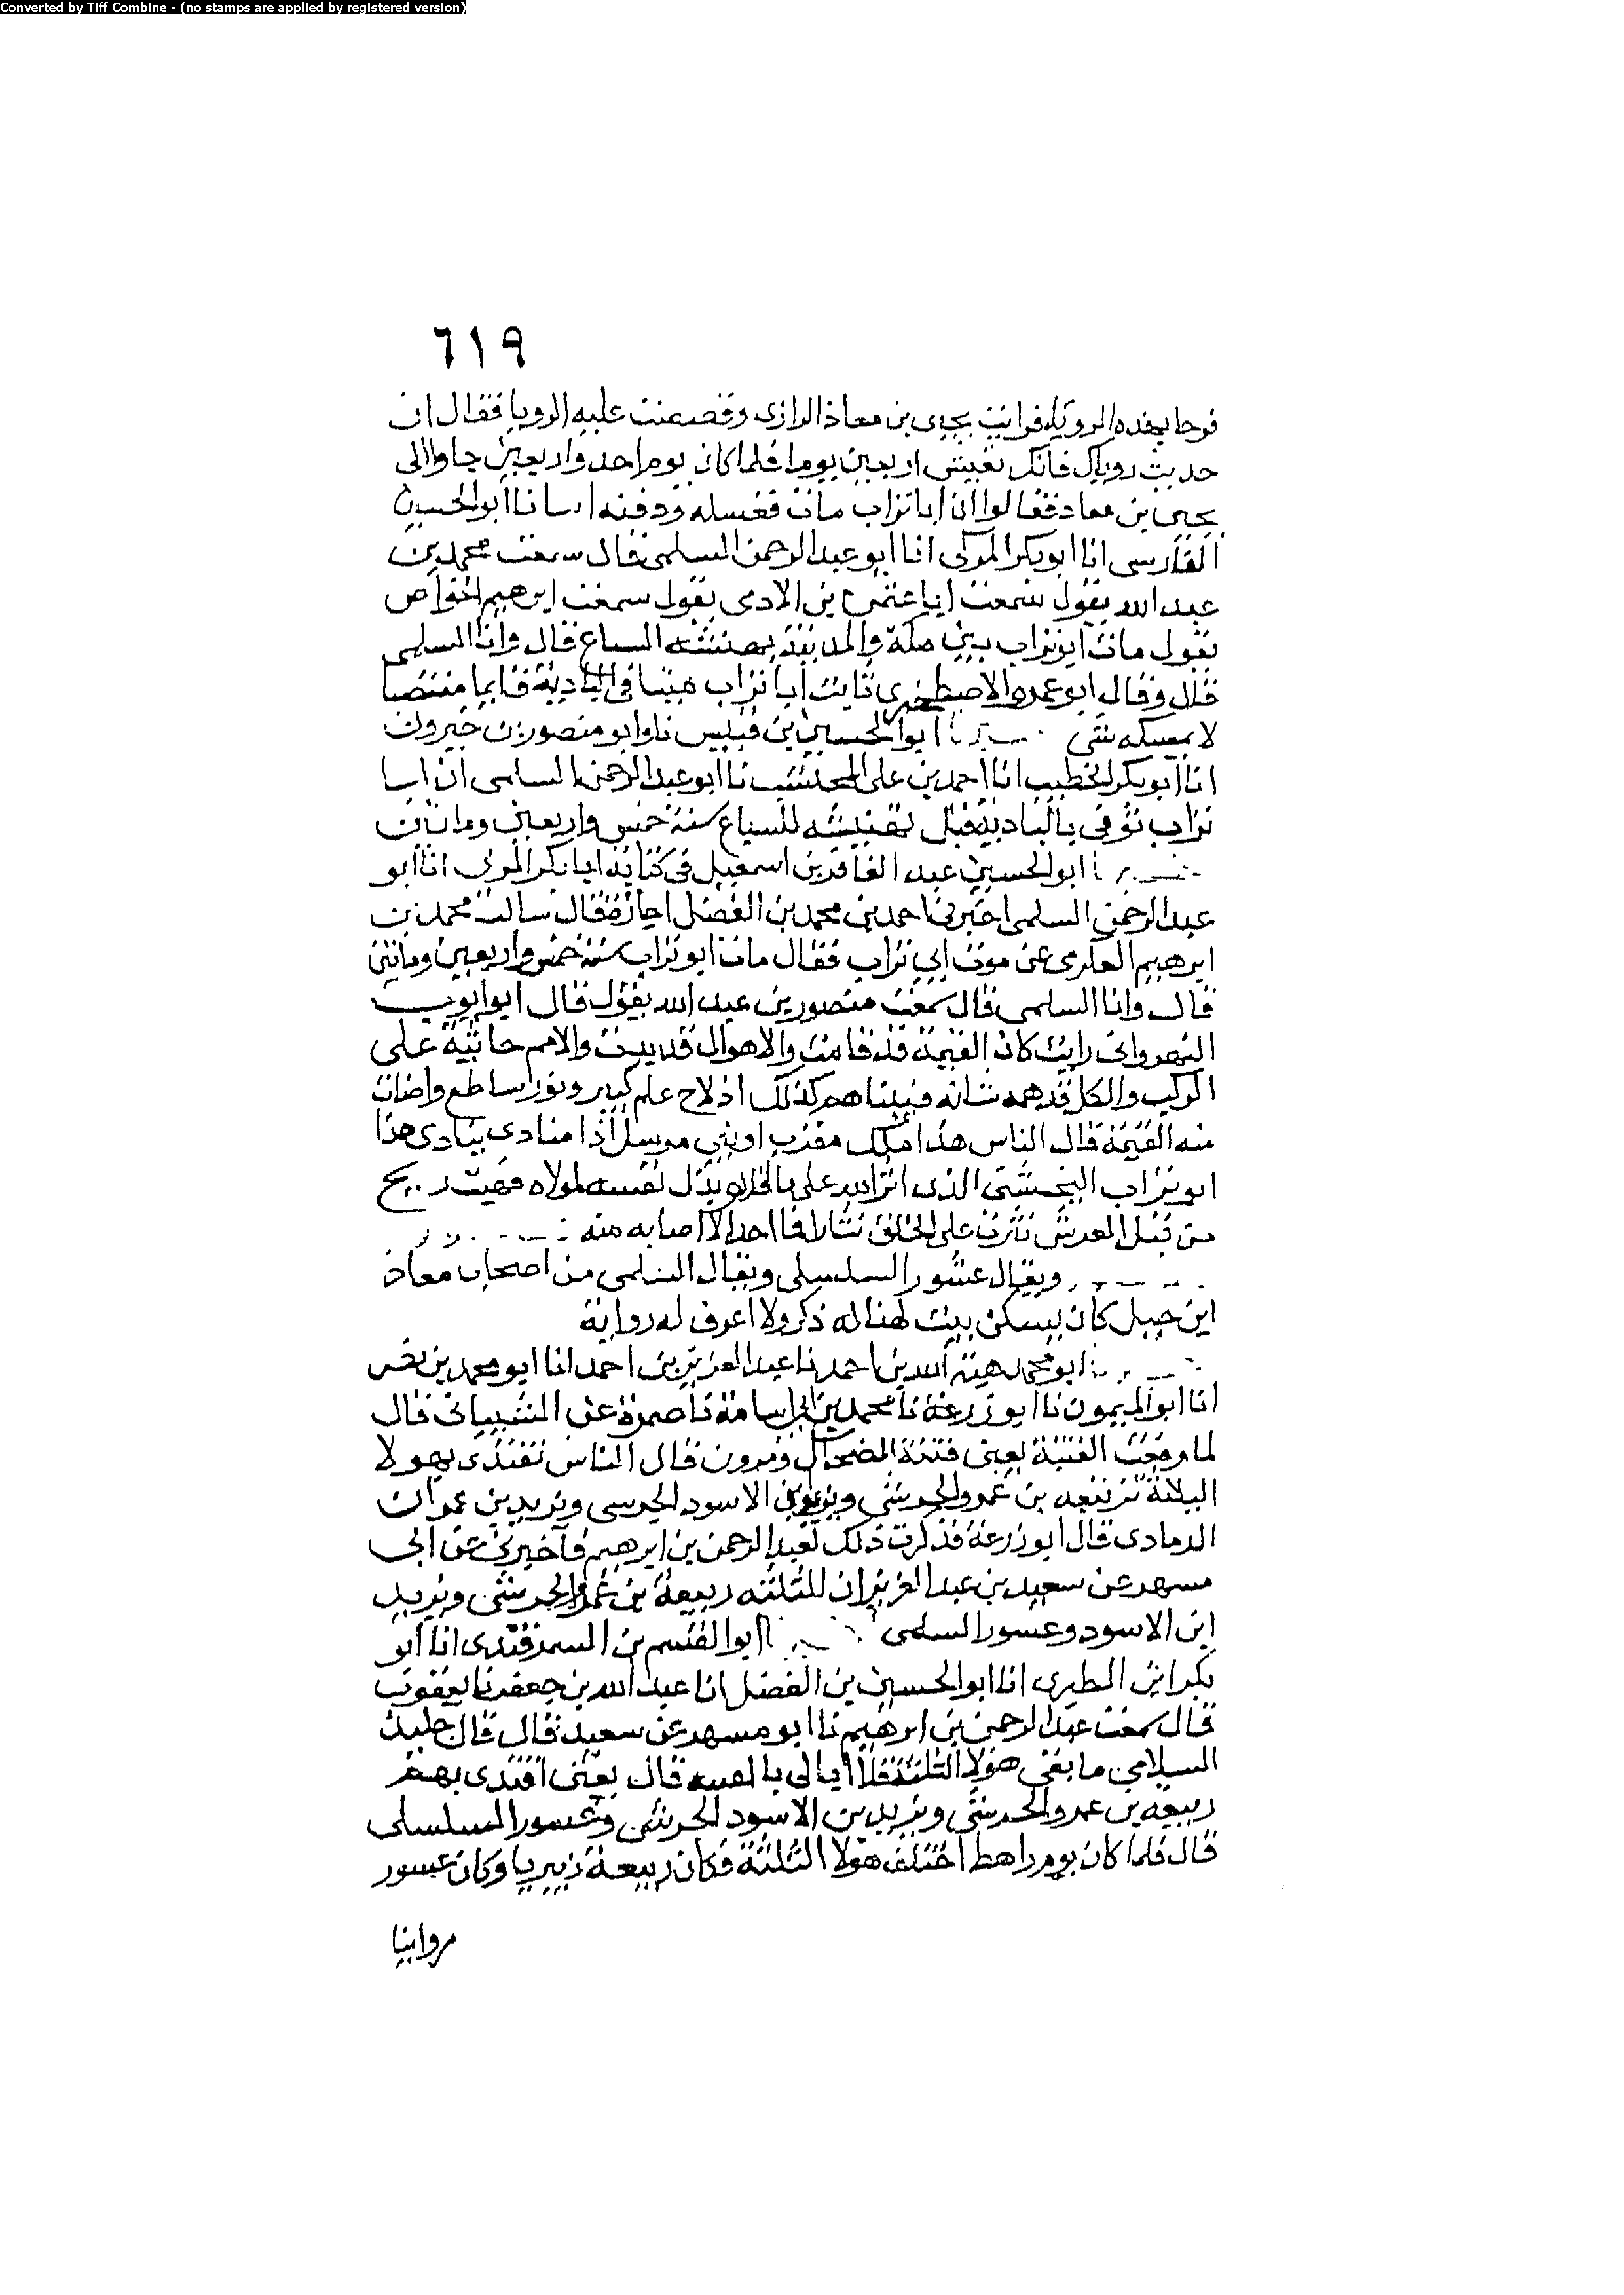 Converted by Tiff Combine - (no stamps are applied by registered version)
٦١٩
فرحا بهذه الرويا فرايت يحيى بن معاذ الرازى وقصصت عليه الرويا فقال ان
حديث روياك فانك تعيش اربعين يوما فلما كان يوم احد واربعين جاوا الى
يحيى بن معاذ فقالوا ان ابا تراب مات فغسله ودفنه انا ابو الحسين
الفارسى انا ابو بكر المزكى انا ابو عبد الرحمن السلمى قال سمعت محمد بن
عبد الله يقول سمعت ابا عثمن بن الادمى يقول سمعت ابرهيم الخواص
يقول مات ابو تراب بين مكة والمدينة نهشته السباع قال وانا السلمى
قال وقال ابو عمرو الاصطخرى رايت ابا تراب ميتا فى البادية قايما منتصبا
لا يمسكه شى ابو الحسين بن قبيس نا وابو منصور بن خيرون
انا ابو بكر الخطيب انا احمد بن على المحتسب نا ابو عبد الرحمن السلمى ان ابا
تراب توفى بالبادية قيل نهشته السباع سنة خمس واربعين وماتين
ابو الحسين عبد الغافر بن اسمعيل فى كتابه ابا بكر المزكى انا ابو
عبد الرحمن السلمى اخبرنى احمد بن محمد بن الفضل اجازة قال سالت محمد بن
ابرهيم العلوى عن موت ابى تراب فقال مات ابو تراب سنة خمس واربعين وماتين
قال وانا السلمى قال سمعت منصور بن عبد الله يقول قال ابو ايوب
النهروانى رايت كان القيمة قد قامت والاهوال قد بدت والامم جاثية على
الركب والكل قد همه شانه فبينا هم كذلك اذ لاح علم كبير ونور ساطع واضات
منه القيمة قال الناس هذا ملك مقرب او نبى مرسل اذا منادى ينادى هذا
ابو تراب النخشبى الذى اثر الله على بذل نفسه لمولاه فهبت ريح
من قبل العرش نثرت على الخلق نثارا فما احد الا اصابه منه
ويقال عشور السلسلى ويقال السلمى من اصحاب معاذ
ابن جبل كان يسكن بيت لهيا له ذكر ولا اعرف له رواية
ابو محمد هبة الله بن احمد نا عبد العزيز بن احمد انا ابو محمد بن نصر
انا ابو الميمون نا ابو زرعة نا محمد بن ابى اسامة نا ضمرة عن الشيبانى قال
لما وقعت الفتنة يعنى فتنة الضحاك ومرون قال الناس نقتدى بهولا
الثلاثة ربيعه بن عمرو الجرشى ويزيد بن الاسود الجرشى ويزيد بن عمران
الدمادى قال ابو زرعة فذكرت ذلك لعبد الرحمن بن ابرهيم فاخبرنى عن ابى
مسهر عن سعيد بن عبد العزيز ان الثلثه ربيعة بن عمرو الجرشى ويزيد
ابن الاسود وعسور السلمى ابو القسم بن السمرقندى انا ابو
بكر ابن الطبرى انا ابو الحسين بن الفضل انا عبد الله بن جعفر نا يعقوب
قال سمعت عبد الرحمن بن ابرهيم نا ابو مسهر عن سعيد قال قال جليد
السلامى ما بقى هولا الثلثة فلا ابالى بالفتنة قال يعنى اقتدى بهم
ربيعه بن عمرو الجرشى ويزيد بن الاسود الجرشى وعسور السلسلى
قال فلما كان يوم راهط اختلف هولا الثلثة فكان ربيعة زبيريا وكان عسور
مروانيا